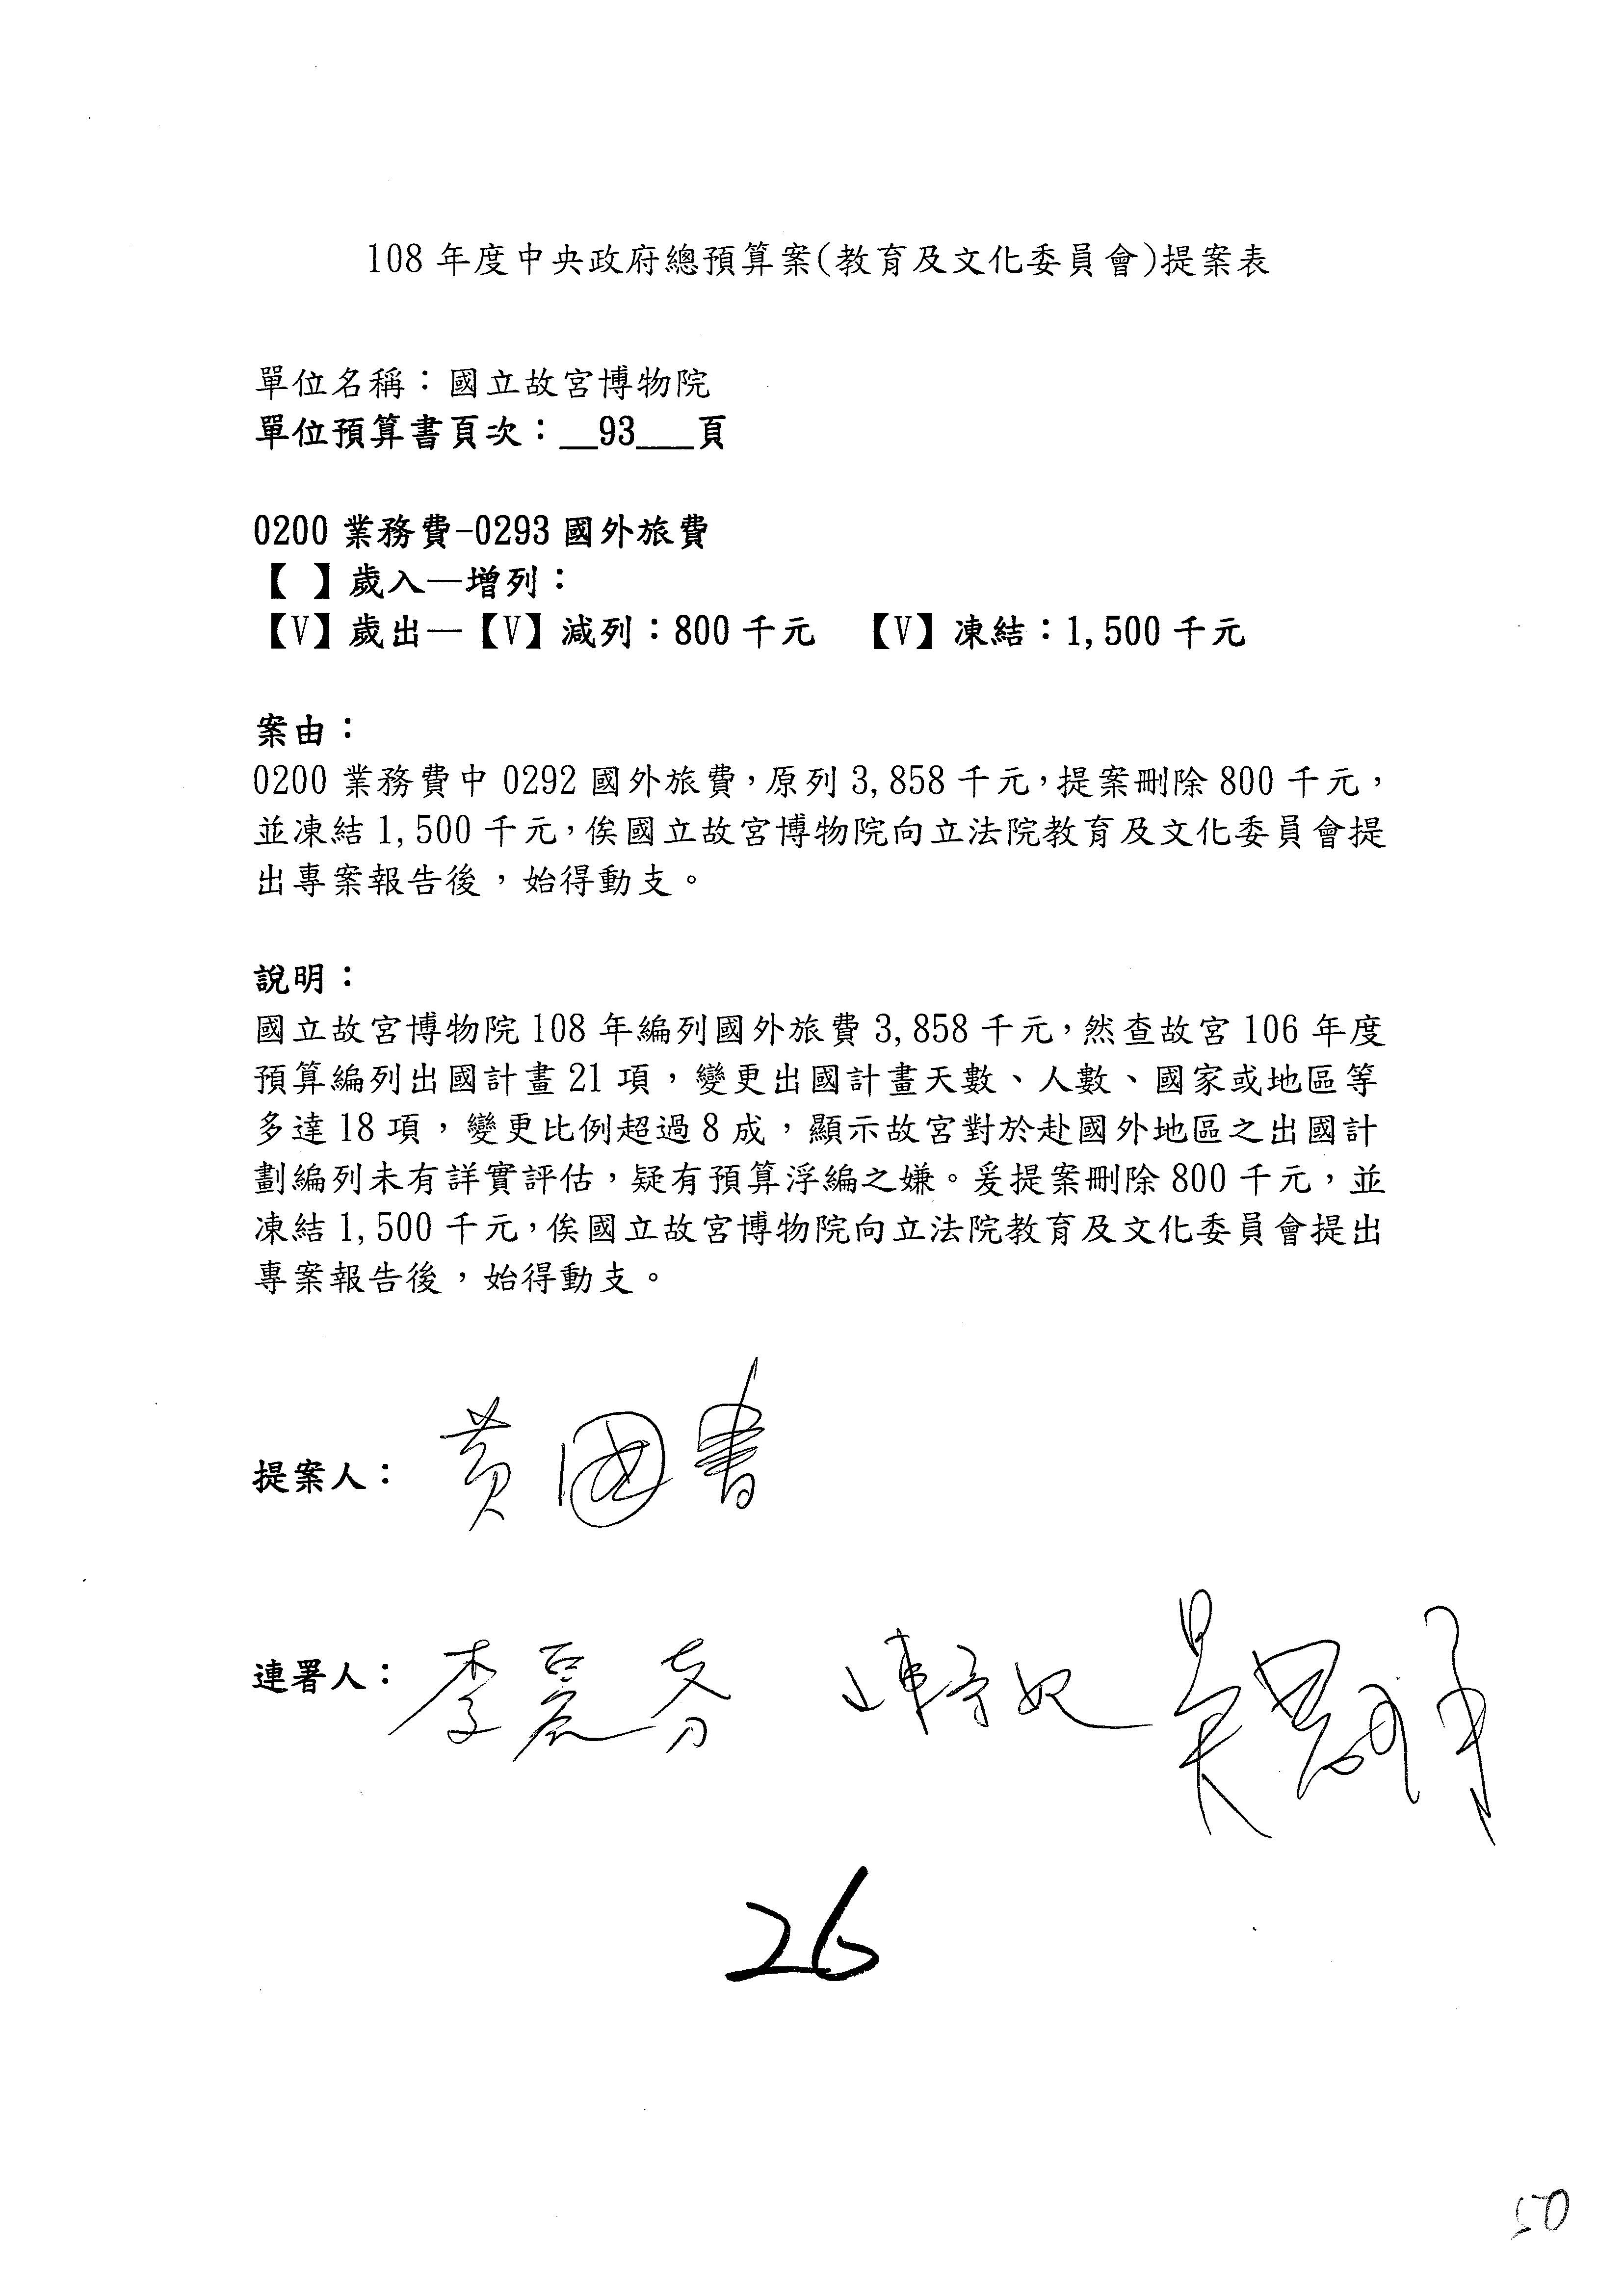 108 年度中央政府總預算案(教育及文化委員會)提案表
單位名稱：國立故宮博物院
單位預算書頁次：__93___頁
0200 業務費-0293 國外旅費
【 】歲入—增列：
【V】歲出—【V】減列：800 千元 【V】凍結：1,500 千元
案由：
0200 業務費中 0292 國外旅費，原列 3,858 千元，提案刪除 800 千元，
並凍結 1,500 千元，俟國立故宮博物院向立法院教育及文化委員會提
出專案報告後，始得動支。
說明：
國立故宮博物院 108 年編列國外旅費 3,858 千元，然查故宮 106 年度
預算編列出國計畫 21 項，變更出國計畫天數、人數、國家或地區等
多達 18 項，變更比例超過 8 成，顯示故宮對於赴國外地區之出國計
劃編列未有詳實評估，疑有預算浮編之嫌。爰提案刪除 800 千元，並
凍結 1,500 千元，俟國立故宮博物院向立法院教育及文化委員會提出
專案報告後，始得動支。
提案人：黃國書
連署人：李麗芬
26
50